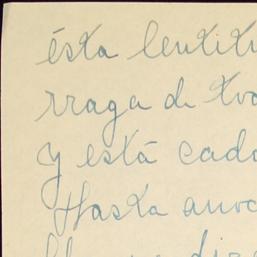 ésta lentitu
rraga de tra
y está cada
Hasta anoc